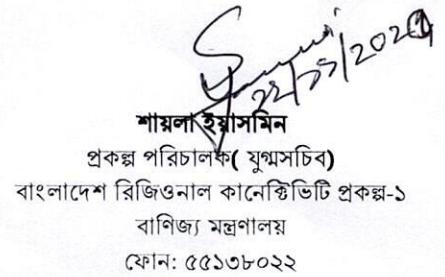 শায়লা ইয়াসমিন
প্রকল্প পরিচালক( যুগ্মসচিব)
বাংলাদেশ রিজিওনাল কানেক্টিভিটি প্রকল্প-১
বাণিজ্য মন্ত্রণালয়
ফোন: ৫৫১৩৮০২২